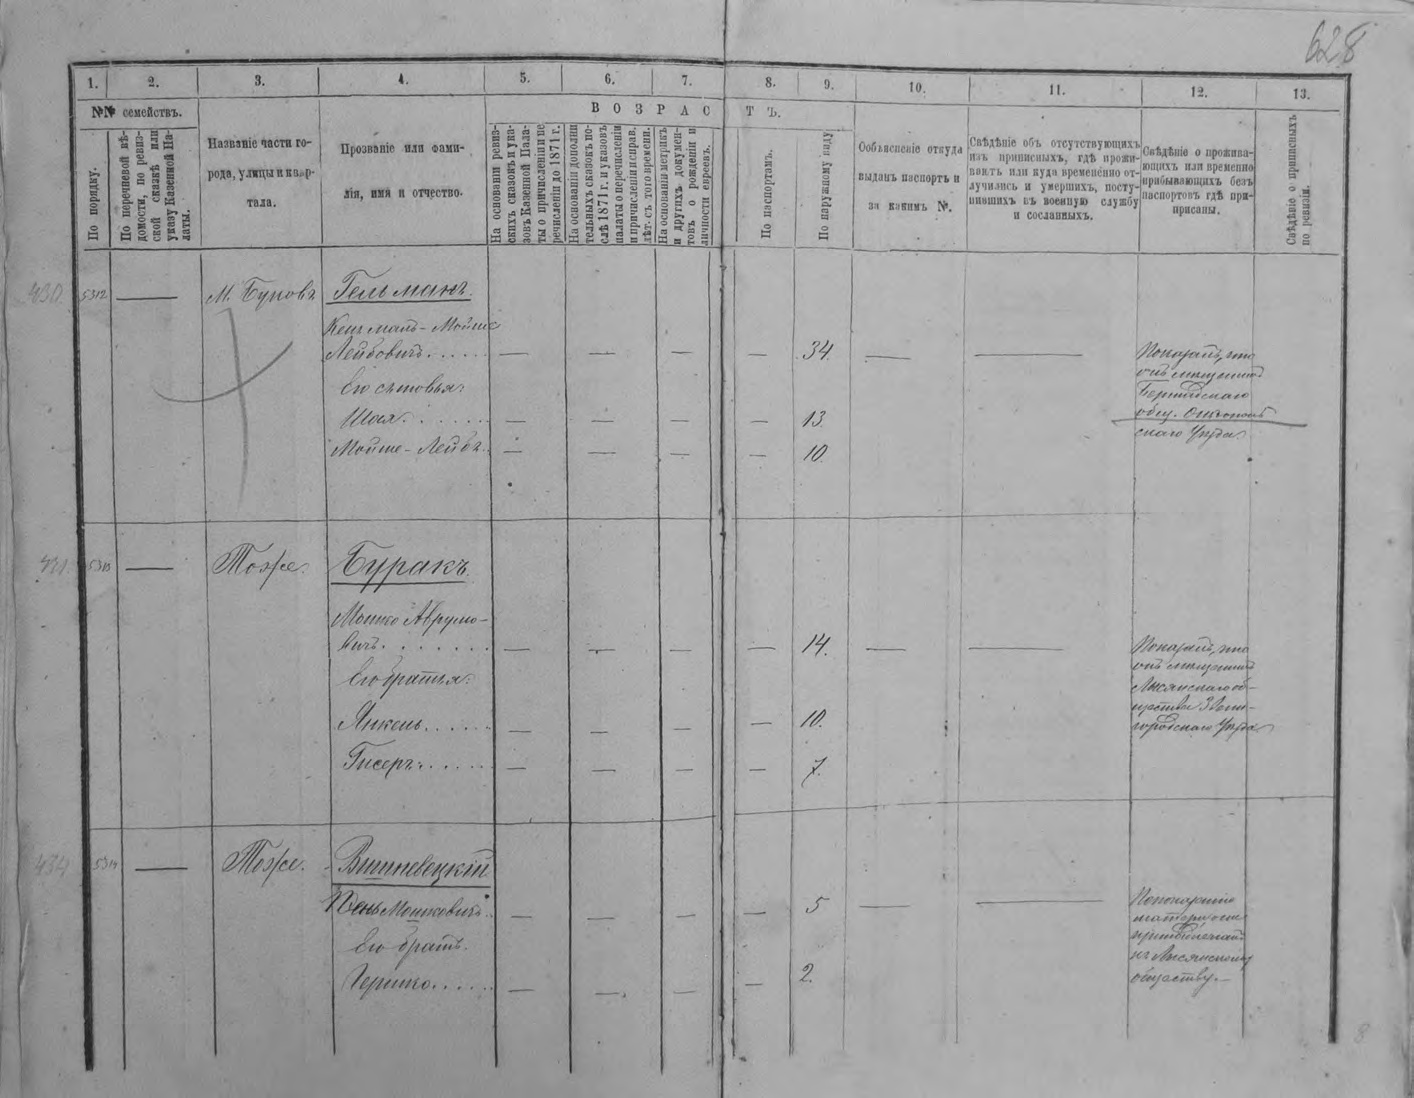 628
1. 2. 3. 4. 5. 6. 7. 8. 9. 10. 11. 12. 13.
№№ семействъ.
В О З Р А С Т Ъ.
По порядку.
По переневой вѣ-
домости, по ревиз-
ской сказкѣ или
указу Казенной Па-
латы.
Названіе части го-
рода, улицы и квар-
тала.
Прозваніе или фами-
лія, имя и отчество.
На основаніи ревиз-
скихъ сказокъ и ука-
зовъ Казенной Пала-
ты о причисленіи и пе-
речисленіи до 1871 г.
На основаніи дополни
тельныхъ сказокъ по-
слѣ 1871 г. и указовъ
палаты о перечисленіи
и причисленіи и справ.
лѣт. съ того времени.
На основаніи метрикъ
и другихъ докумен-
товъ о рожденіи и
личности евреевъ.
По паспортамъ.
По наружному виду
Объясненіе откуда
выданъ паспортъ и
за какимъ №.
Свѣдѣніе объ отсутствующихъ
изъ приписныхъ, гдѣ прожи-
ваютъ или куда временно от-
лучились и умершихъ, посту-
пившихъ въ военную службу
и сосланныхъ.
Свѣдѣніе о прожива-
ющихъ или временно
прибывающихъ безъ
паспортовъ гдѣ при-
писаны.
Свѣдѣніе о приписныхъ
по ревизіи.
430 5312 — М. Буковъ Гельманъ.
Мойше
Лейбовичъ. — — — — 34. — — Показалъ, что
онъ мѣщанинъ
Его сыновья:
общ.
Шая. — — — — 13.
скаго Уѣзда
Мойше-Лейбъ. — — — — 10.
431. 5313 — Тоже. Буракъ.
Мошко Аврумо-
вичъ. — — — — 14. — — Показалъ, что
онъ мѣщанинъ
Его братья:
Лисянскаго об-
щества Звени-
Янкель. — — — — 10.
городскаго Уѣзда
Гисеръ. — — — — 7.
434 5314 — Тоже. Вишневецкій
Мошковичъ. — — — — 5 — — По показанію
матери
Его братъ.
къ Лисянскому
Гершко. — — — — 2.
обществу. —
8